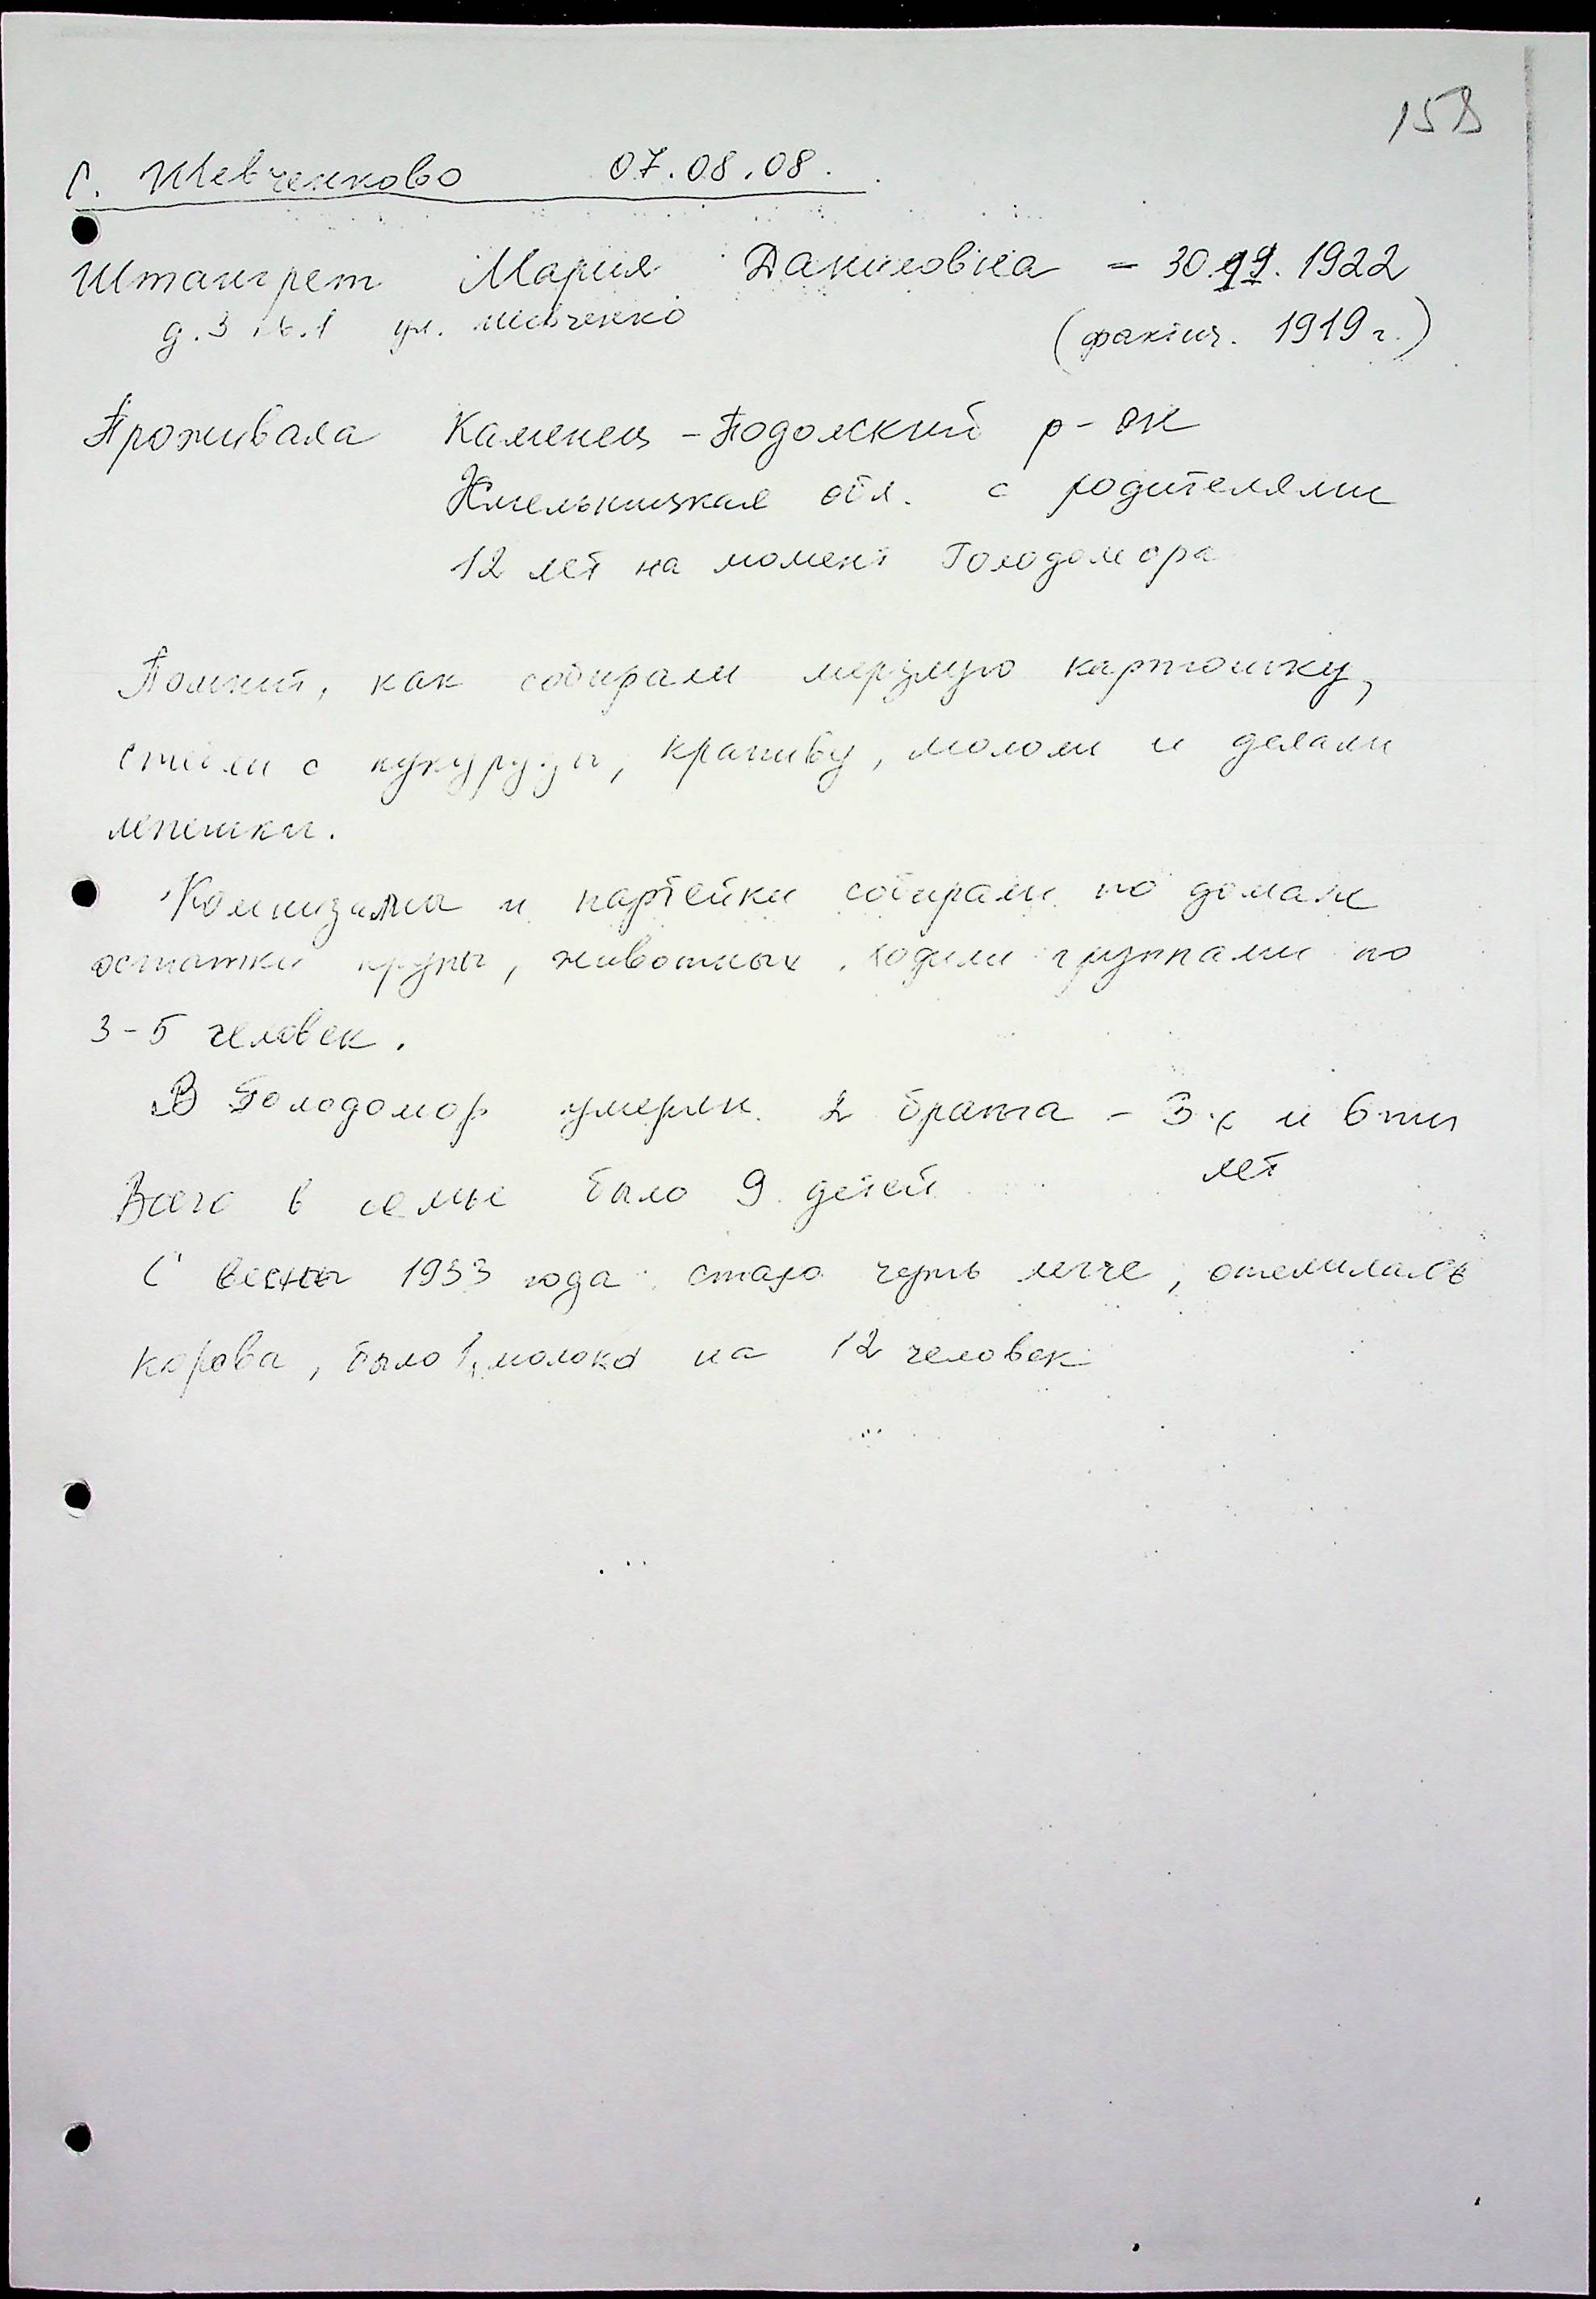 158
с. Шевченково 07.08.08.
Штангрет Мария Даниловна - 30.09.1922
д.3 кв.1 ул. Шевченко
(фактич. 1919 г.)
Проживала Каменец-Подолский р-он
Хмельницкая обл. с родителями
12 лет на момент Голодомора
Помнит, как собирали мерзлую картошку,
с кукурузы, крапиву, мололи и делали
лепешки.
и партейки собирали по домам
остатки крупы, животных, ходили группами по
3-5 человек.
В Голодомор умерли 2 брата - 3-х и 6-ти
лет
Всего в семье было 9 детей
С весны 1933 года стало чуть легче, отелилась
корова, было молоко на 12 человек